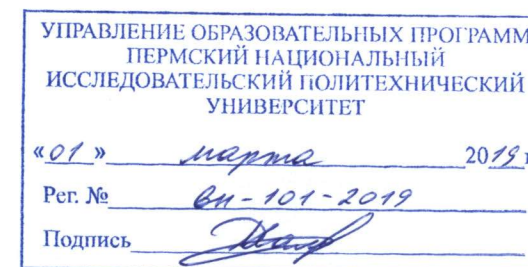 УПРАВЛЕНИЕ ОБРАЗОВАТЕЛЬНЫХ ПРОГРАММ
ПЕРМСКИЙ НАЦИОНАЛЬНЫЙ
ИССЛЕДОВАТЕЛЬСКИЙ ПОЛИТЕХНИЧЕСКИЙ
УНИВЕРСИТЕТ
«01» марта 2019 г
Рег. № вн-101-2019
Подпись